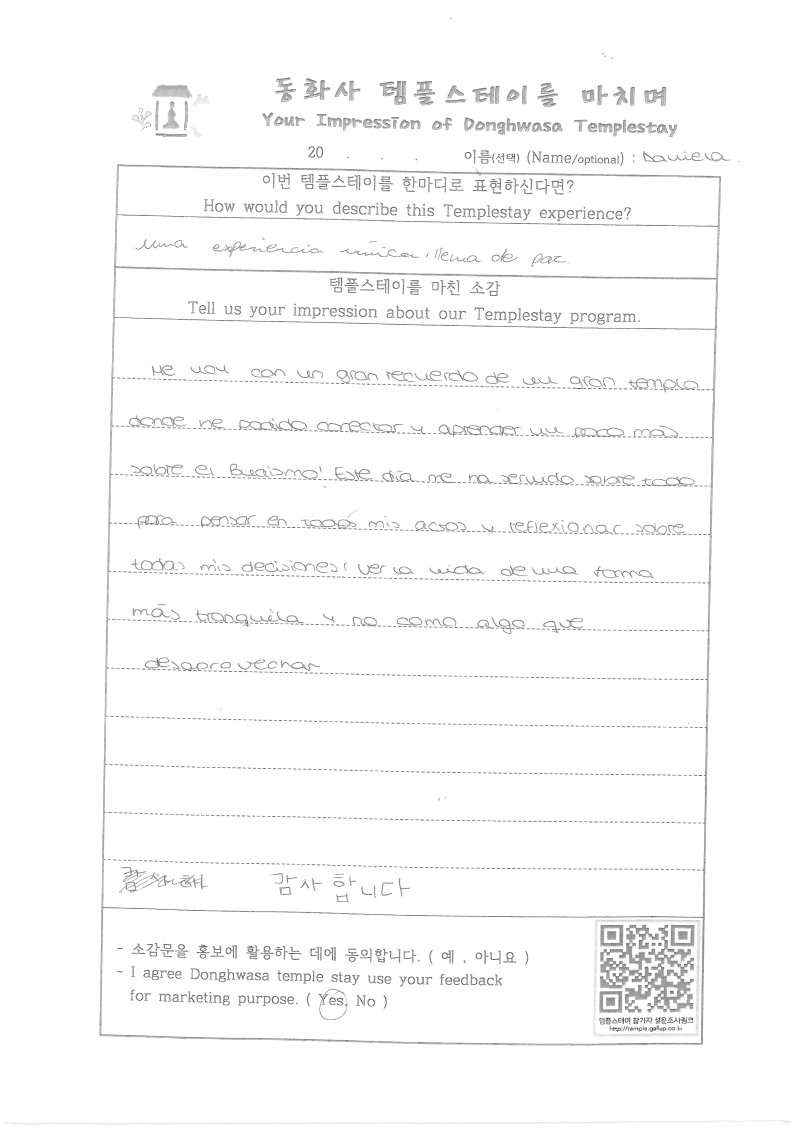 동화사 템플스테이를 마치며
Your Impression of Donghwasa Templestay
20 . . . 이름(선택) (Name/optional) : Daniela.
이번 템플스테이를 한마디로 표현하신다면?
How would you describe this Templestay experience?
una experiencia única, llena de paz
템플스테이를 마친 소감
Tell us your impression about our Templestay program.
Me voy con un gran recuerdo de un gran templo
donde he podido conectar y aprender un poco más
sobre el Budismo! Este día me ha servido sobre todo
para pensar en todos mis actos y reflexionar sobre
todas mis decisiones, ver la vida de una forma
más tranquila y no como algo que
desaprovechar
감사합니다
- 소감문을 홍보에 활용하는 데에 동의합니다. ( 예 , 아니요 )
- I agree Donghwasa temple stay use your feedback
for marketing purpose. ( Yes, No )
템플스테이 참가자 설문조사링크
http://temple.gallup.co.kr